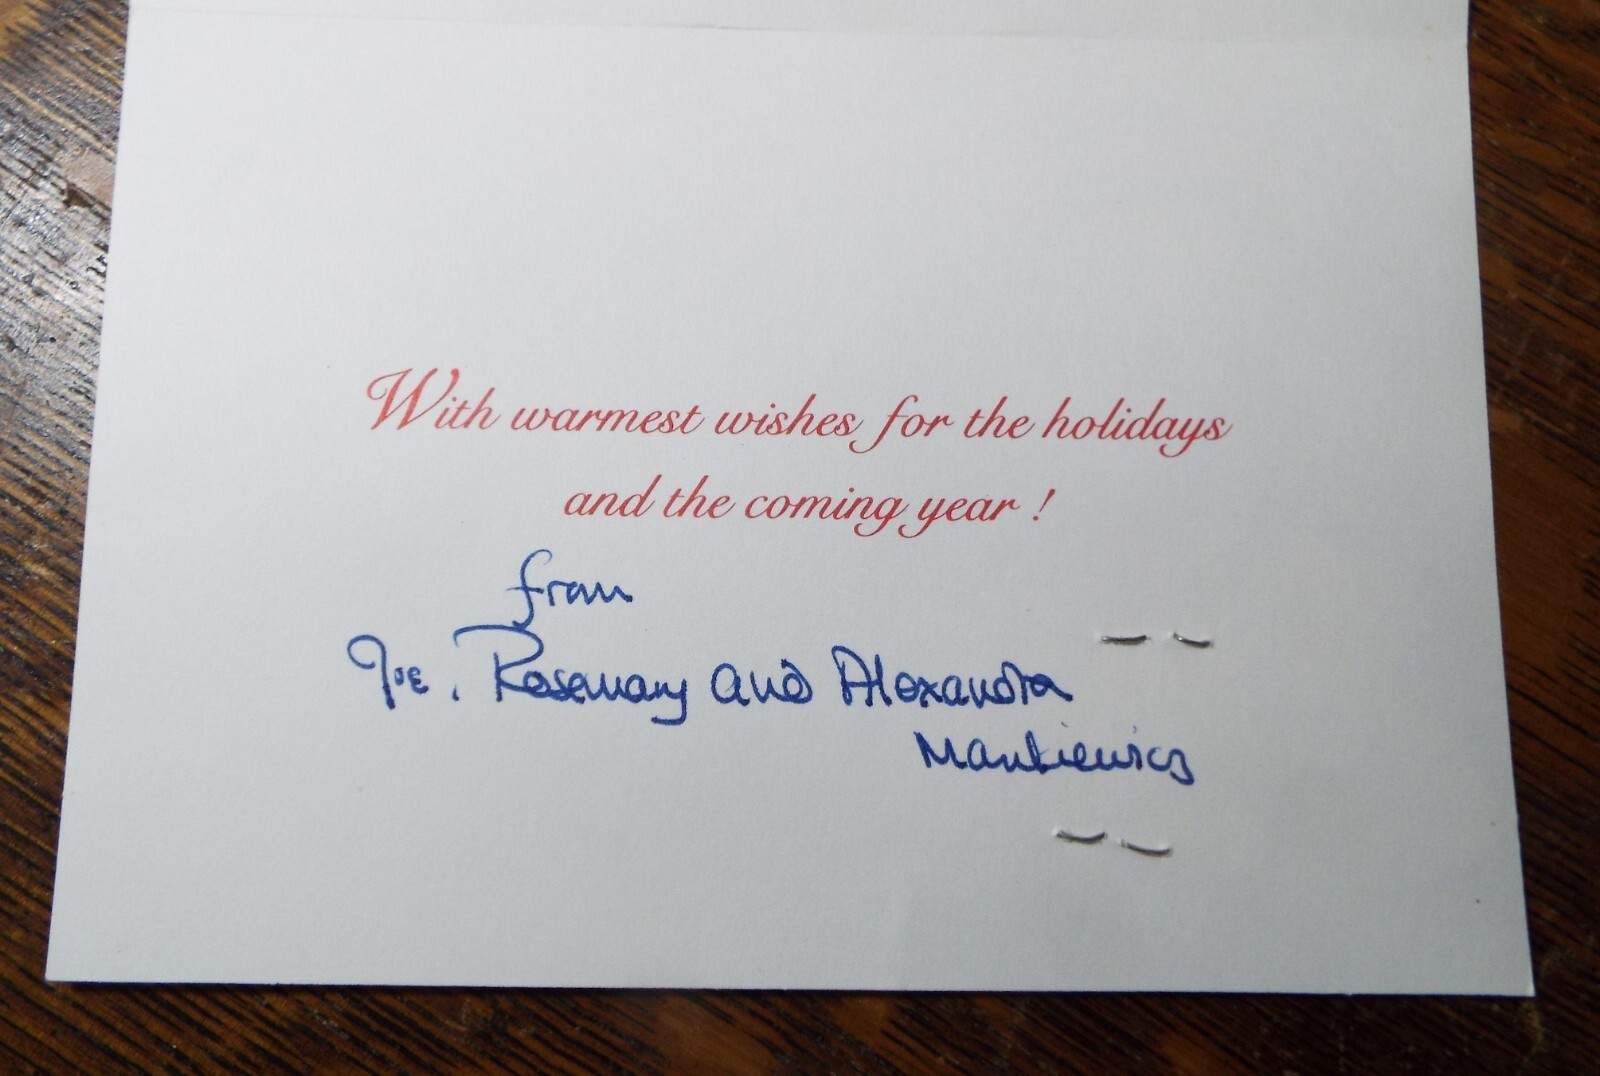 With warmest wishes for the holidays
and the coming year !
from
Joe, Rosemary and Alexandra
Mankiewicz